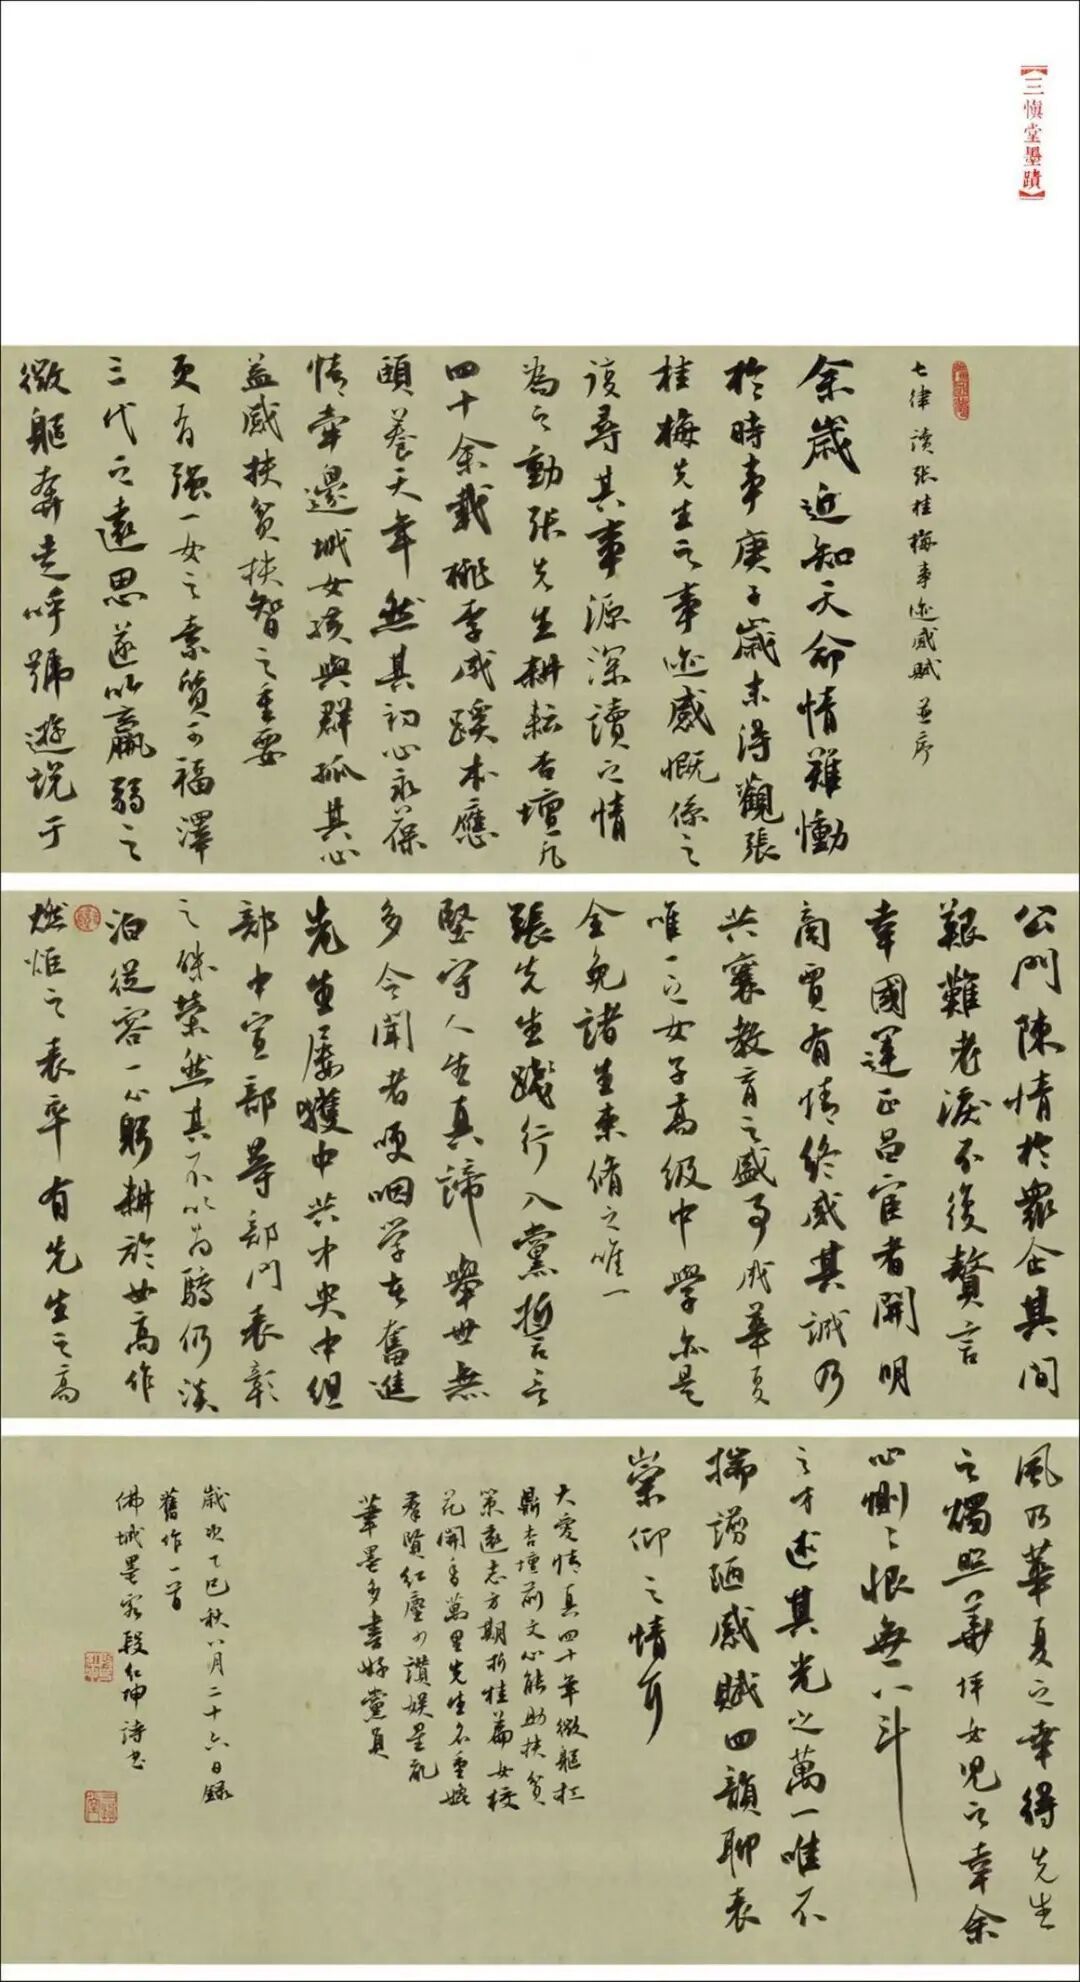 【三慎堂墨蹟】
七律 读张桂梅事迹感赋 并序
余歲近知天命情難慟
於時事庚子歲末得觀張
桂梅先生之事迹感慨係之
該尋其事源深讀之情
為之動張先生耕耘杏壇凡
四十余載桃李成蹊本應
頤養天年然其初心永葆
情牽邊城女孩與群孤其心
益感扶貧扶智之重要
更有强一女之素質可福澤
三代之遠思遂以羸弱之
微軀奔走呼號遊説于
公門陳情於眾企其間
艱難老淚不復贅言
幸國運正昌宦者開明
商賈有情終感其誠乃
共襄教育之盛事成華夏
唯一之女子高级中學亦是
全免諸生束脩之唯一
張先生踐行入黨誓言
堅守人生真諦舉世無
多令聞者哽咽学者奮進
先生屡獲中共中央中组
部中宣部等部门表彰
之殊榮然其不以為驕仍淡
泊從容一心躬耕於女高作
燃炬之表率有先生之高
風乃華夏之幸得先生
之燭照華坪女児之幸余
心惻惻恨無八斗
之才述其光之萬一唯不
揣謭陋感賦四韻聊表
崇仰之情耳
大愛情真四十年微軀扛
鼎杏壇前文心能助扶貧
策遠志方期折桂篇女校
花開香萬里先生名重娩
羣賢红塵可讚娱星亂
筆墨多書好黨員
歲次乙巳秋八月二十六日録
舊作一首
佛城墨客段红坤詩书